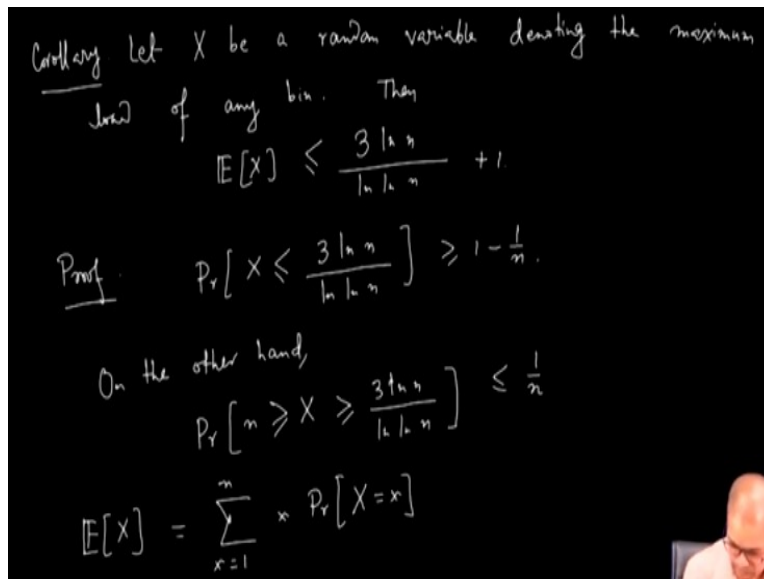 Corollary Let X be a random variable denoting the maximum
load of any bin. Then
𝔼[X] ≤ 3 ln n / ln ln n + 1.
Proof. Pr[X ≤ 3 ln n / ln ln n] ≥ 1 - 1/n.
On the other hand,
Pr[n ≥ X ≥ 3 ln n / ln ln n] ≤ 1/n
𝔼[X] = ∑_{x=1}^{n} x Pr[X=x]